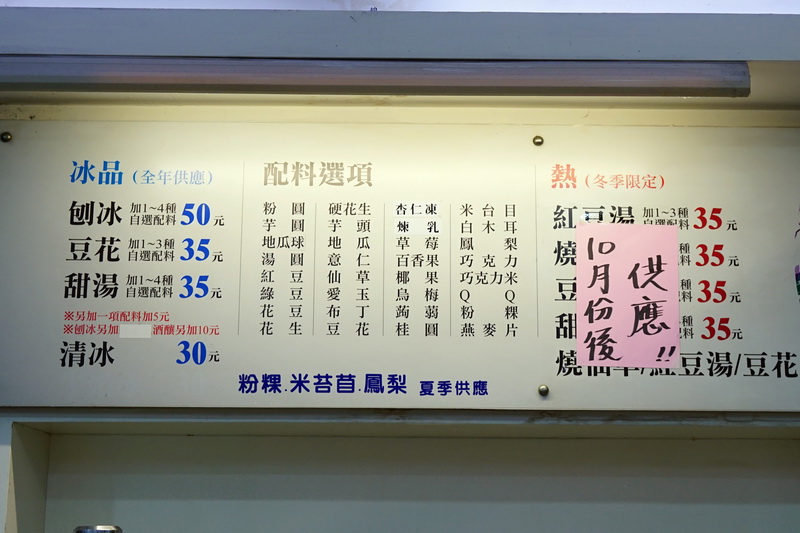 冰品 (全年供應)
刨冰 加1~4種自選配料 50元
豆花 加1~3種自選配料 35元
甜湯 加1~4種自選配料 35元
※另加一項配料加5元
※刨冰另加 酒釀另加10元
清冰 30元
配料選項
粉圓 硬花生 杏仁凍 米台目
芋圓 芋頭 煉乳 白木耳
地瓜球 地瓜 草莓 鳳梨
湯圓 意仁 百香果 巧克力
紅豆 仙草 椰果 巧克力米
綠豆 愛玉 烏梅 QQ
花豆 布丁 蒟蒻 粉粿
花生 豆花 桂圓 燕麥片
粉粿.米苔苜.鳳梨 夏季供應
熱 (冬季限定)
紅豆湯 加1~3種自選配料 35元
燒 料 35元
豆 料 35元
甜 料 35元
燒仙草/紅豆湯/豆花
10月份後
供應!!